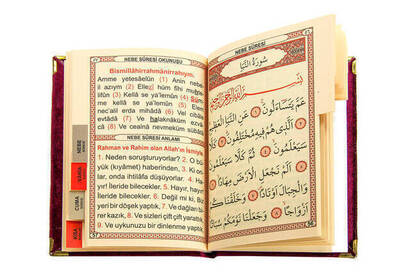 NEBE SÛRESİ OKUNUŞU
Bismillâhirrahmânirrahıym.
Amme yetesâelûn (1) Anin nebe
il azıym (2) Ellezî hüm fîhi muhte
lifûn (3) Kellâ se ya'lemûn (4) Süm
me kellâ se ya'lemûn (5) Elem
nec'alil erda mihâdâ (6) Vel cibâle
evtâdâ (7) Ve halaknâküm ezvâ
câ (8) Ve cealnâ nevmeküm sübâtâ
NEBE SÛRESİ ANLAMI
Rahman ve Rahim olan Allah'ın İsmiyle
1. Neden soruşturuyorlar? 2. O bü
yük (kıyâmet) haberinden, 3. Ki on
lar, onda ihtilâfa düşüyorlar. 4. Ha
yır! İleride bilecekler. 5. Hayır, hayır!
İleride bilecekler. 6. Değil mi ki, Biz
yeri bir döşek yaptık, 7. Ve dağları bi
rer kazık, 8. Ve sizleri çift çift yarattık
9. Ve uykunuzu bir dinlenme yaptık
NEBE
YASİN
CUMA
KISA
NEBE SÛRESİ
سُورَةُ النَّبَأِ
بِسْمِ اللّٰهِ الرَّحْمٰنِ الرَّحِيمِ
عَمَّ يَتَسَاءَلُونَ ﴿١﴾ عَنِ النَّبَاِ الْعَظِيمِ
﴿٢﴾ اَلَّذِى هُمْ فِيهِ مُخْتَلِفُونَ ﴿٣﴾
كَلَّا سَيَعْلَمُونَ ﴿٤﴾ ثُمَّ كَلَّا سَيَعْلَمُونَ
﴿٥﴾ اَلَمْ نَجْعَلِ الْاَرْضَ مِهَادًا ﴿٦﴾
وَالْجِبَالَ اَوْتَادًا ﴿٧﴾ وَخَلَقْنَاكُمْ
اَزْوَاجًا ﴿٨﴾ وَجَعَلْنَا نَوْمَكُمْ سُبَاتًا